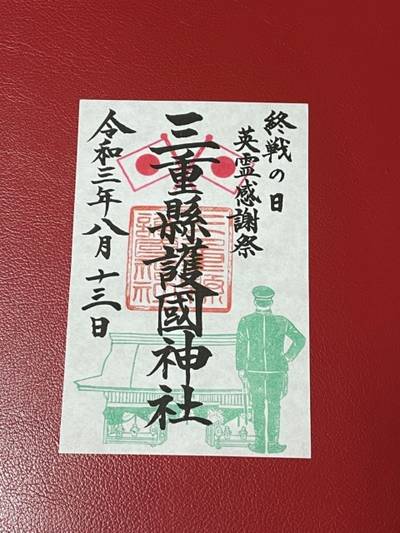 終戦の日
英霊感謝祭
三重縣護國神社
令和三年八月十三日